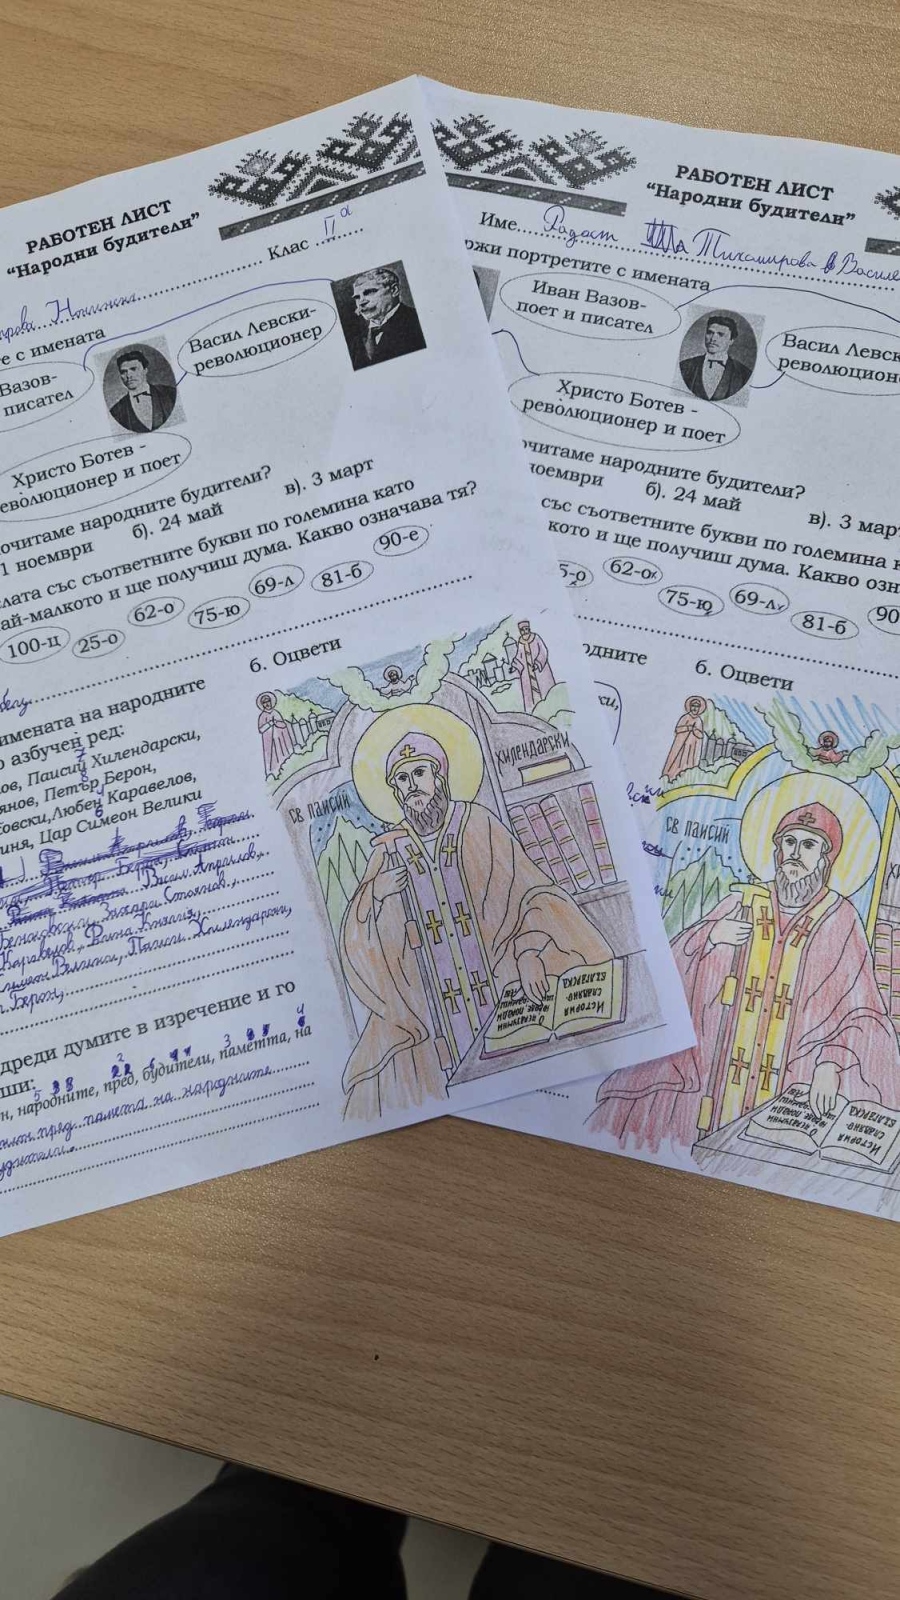 РАБОТЕН ЛИСТ
"Народни будители"
Клас II а
те с имената
Вазов-
писател
Васил Левски-
революционер
Христо Ботев -
революционер и поет
очитаме народните будители?
1 ноември б). 24 май в). 3 март
лата със съответните букви по големина като
ай-малкото и ще получиш дума. Какво означава тя?
100-ц 25-о 62-о 75-ю 69-л 81-б 90-е
6. Оцвети
имената на народните
о азбучен ред:
лов, Паисий Хилендарски,
янов, Петър Берон,
овски, Любен Каравелов,
иня, Цар Симеон Велики
Васил Априлов,
Бенковски, Захари Стоянов,
Каравелов,
Паисий Хилендарски,
Берон,
дреди думите в изречение и го
ши:
н, народните, пред, будители, паметта, на
пред паметта на народните
СВ ПАИСИЙ
ХИЛЕНДАРСКИ
ИСТОРИЯ
СЛАВЯНО-
БЪЛГАРСКА
РАБОТЕН ЛИСТ
"Народни будители"
Име Радост Тихомирова Васile
ржи портретите с имената
Иван Вазов-
поет и писател
Васил Левск
революцион
Христо Ботев -
революционер и поет
очитаме народните будители?
ноември б). 24 май в). 3 март
със съответните букви по големина к
кото и ще получиш дума. Какво озн
5-о 62-о 75-ю 69-л 81-б 90
одните
6. Оцвети
ки,
СВ ПАИСИЙ
ИСТОРИЯ
СЛАВЯНО-
БЪЛГАРСКА